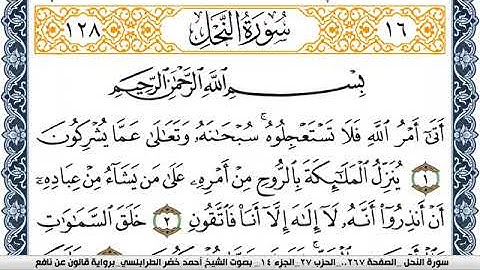 ١٦ سُورَةُ النَّحْلِ ١٢٨
بِسْمِ اللَّهِ الرَّحْمَٰنِ الرَّحِيمِ
أَتَىٰ أَمْرُ اللَّهِ فَلَا تَسْتَعْجِلُوهُ سُبْحَانَهُ وَتَعَالَىٰ عَمَّا يُشْرِكُونَ
١ يُنَزِّلُ الْمَلَائِكَةَ بِالرُّوحِ مِنْ أَمْرِهِ عَلَىٰ مَن يَشَاءُ مِنْ عِبَادِهِ
أَنْ أَنذِرُوا أَنَّهُ لَا إِلَٰهَ إِلَّا أَنَا فَاتَّقُونِ ٢ خَلَقَ السَّمَاوَاتِ
سورة النحل _الصفحة ٢٦٧_ الحزب ٢٧_الجزء ١٤_ بصوت الشيخ أحمد خضر الطرابلسي_برواية قالون عن نافع